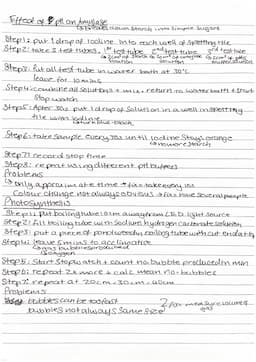 Effect of pH on Amylase
↳ breaks down starch into simple sugars
Step1: put 1 drop of iodine into each well of spotting tile
Step2: take 3 test tubes. 1st test tube 2nd test tube 3rd test tube
↳ 2cm³ of starch solution ↳ 2cm³ of amylase solution ↳ 2cm³ of pH5 buffer solution
Step3: put all test tube in water bath at 30°C
leave for 10 mins
Step4: combine all solutions + mix - return to water bath + start
stop watch
Step5: After 30s put 1 drop of solution in a well in spotting
tile with iodine
↳ turns blue-black
Step6: take sample every 30s until iodine stays orange
↳ no more starch
Step7: record stop time
Step8: repeat using different pH buffers
Problems
↳ only approx time → take every 10s
Colour change not always obvious → have several people
Photosynthesis
Step1: put boiling tube 10cm away from LED light source
Step2: fill boiling tube with Sodium hydrogen carbonate solution
Step3: put a piece of pondweed in boiling tube with cut end at top
Step4: leave 5 mins to acclimatise
↳ gas bubbles produced
↳ oxygen
Step5: start stopwatch + count no. bubble produced in 1 min
Step6: repeat 2x more + calc mean no. bubbles
Step7: repeat at 20cm - 30cm - 40cm
Problems
bubbles can be too fast
bubbles not always same size
measure volume of gas